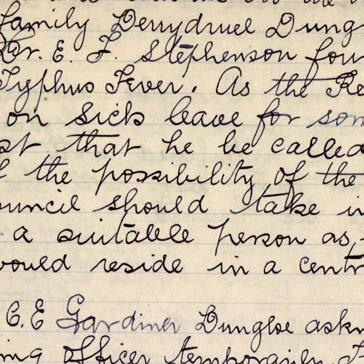 family Derrydruel Dung
Dr. E. F. Stephenson fou
Typhus Fever. As the Re
on sick leave for som
st that he be called
f the possibility of the
ouncil should take i
a suitable person as,
would reside in a centr
C. E Gardiner Dungloe askn
ing officer temporarily